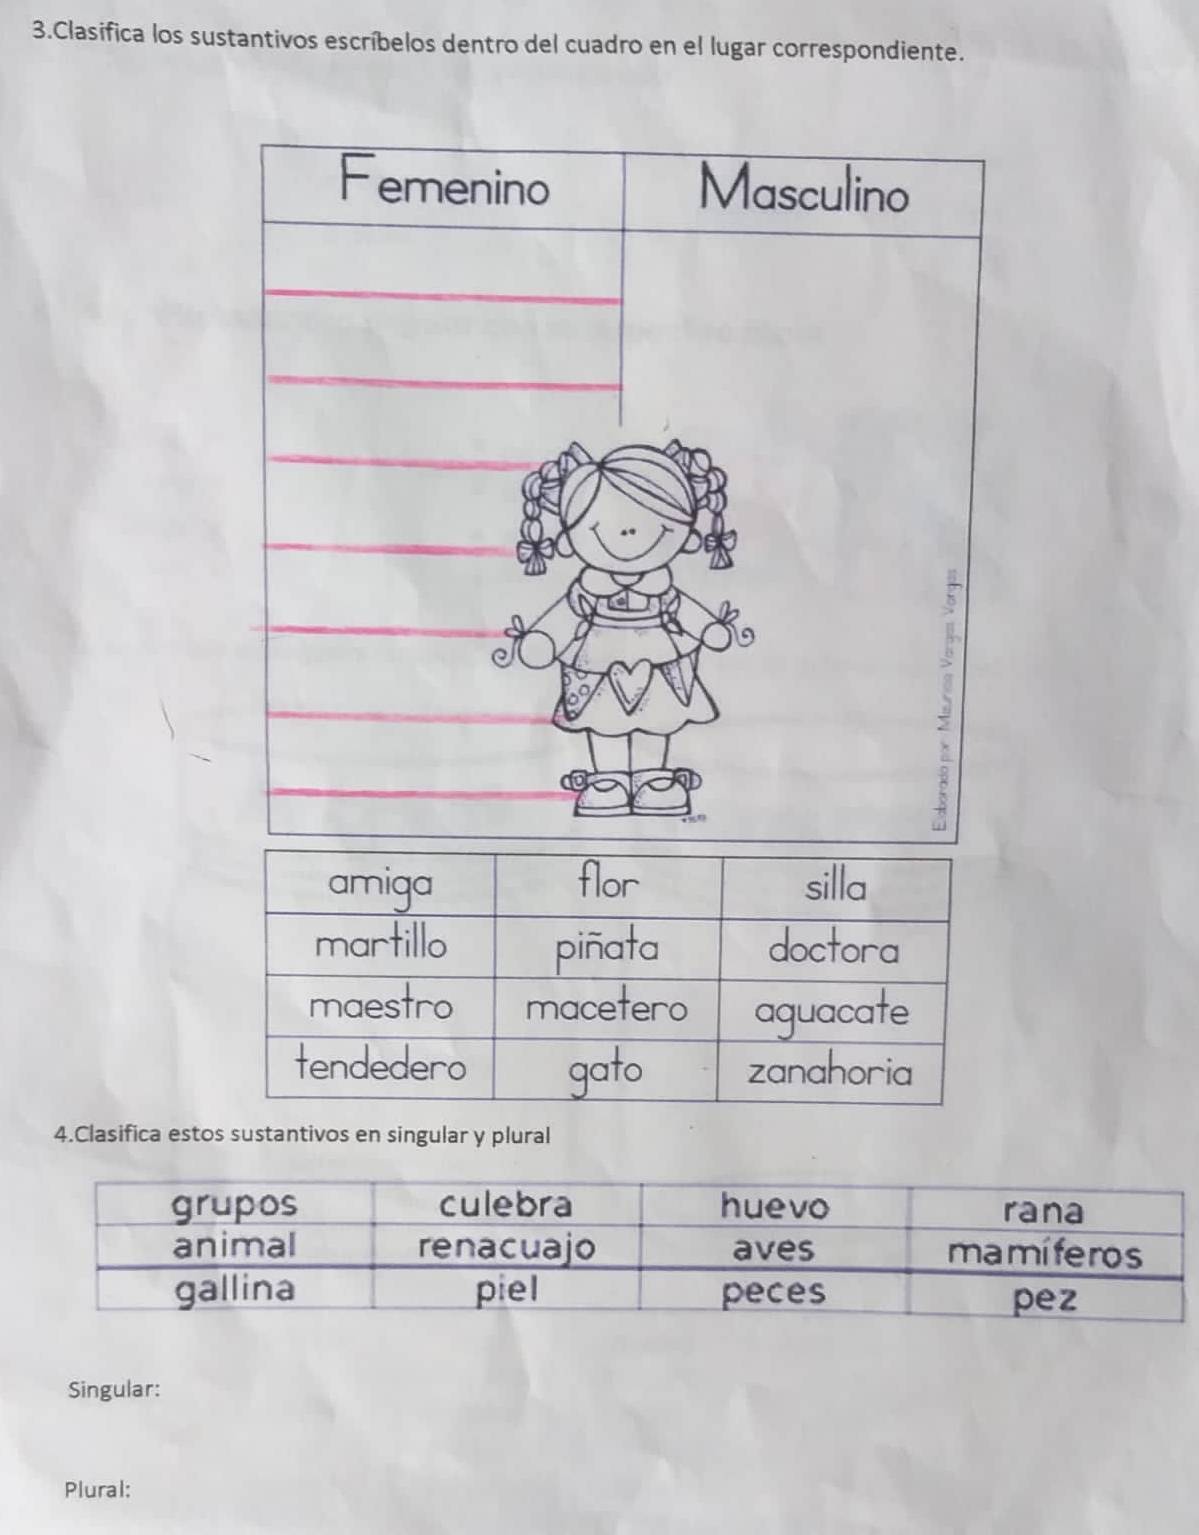 3.Clasifica los sustantivos escríbelos dentro del cuadro en el lugar correspondiente.
Femenino Masculino
Elaborado por: Maurisa Vargas Vargas
amiga flor silla
martillo piñata doctora
maestro macetero aguacate
tendedero gato zanahoria
4.Clasifica estos sustantivos en singular y plural
grupos culebra huevo rana
animal renacuajo aves mamíferos
gallina piel peces pez
Singular:
Plural: